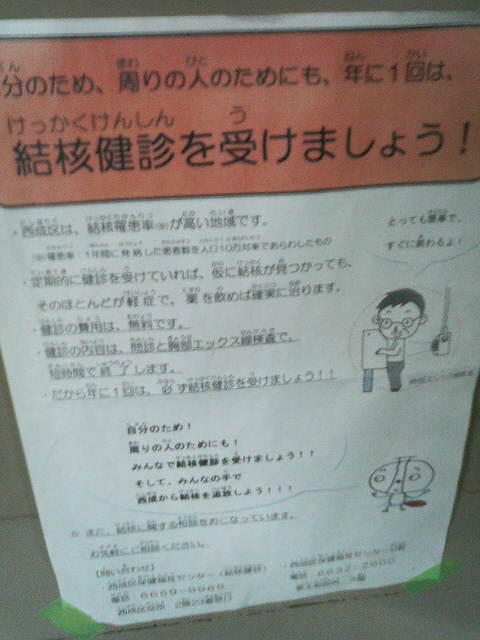 分のため、周りの人のためにも、年に1回は、
結核健診を受けましょう！
・西成区は、結核罹患率(※)が高い地域です。
(※)罹患率：1年間に発病した患者数を人口10万対率であらわしたもの
・定期的に健診を受けていれば、仮に結核が見つかっても、
そのほとんどが軽症で、薬を飲めば確実に治ります。
・健診の費用は、無料です。
・健診の内容は、問診と胸部エックス線検査で、
短時間で終了します。
・だから年に1回は、必ず結核健診を受けましょう！！
とっても簡単で、
すぐに終わるよ！
自分のため！
周りの人のためにも！
みんなで結核健診を受けましょう！！
そして、みんなの手で
西成から結核を追放しよう！！！
また、結核に関する相談をおこなっています。
お気軽にご相談ください。
【問い合わせ】
・西成区保健福祉センター（結核健診）
電話
西成区役所 2階23番窓口
・西成区保健福祉センター分館
電話